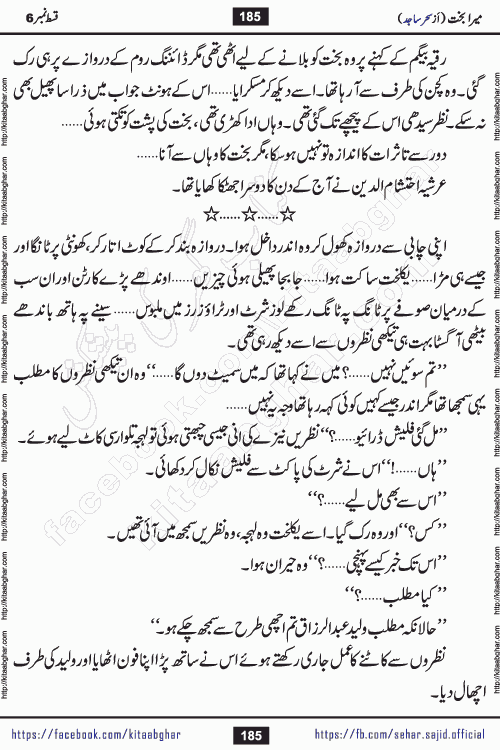 میرا بخت (از سحر ساجد)
185
قسط نمبر 6
رقیہ بیگم کے کہنے پر وہ بخت کو بلانے کے لیے اٹھی تھی مگر ڈائننگ روم کے دروازے پر ہی رک
گئی۔ وہ کچن کی طرف سے آ رہا تھا۔ اسے دیکھ کر مسکرایا......اس کے ہونٹ جواب میں ذرا سا پھیل بھی
نہ سکے۔ نظر سیدھی اس کے پیچھے تک گئی تھی۔ وہاں ادا کھڑی تھی، بخت کی پشت کو تکتی ہوئی......
دور سے تاثرات کا اندازہ تو نہیں ہو سکا، مگر بخت کا وہاں سے آنا......
عرشیہ احتشام الدین نے آج کے دن کا دوسرا جھٹکا کھایا تھا۔
☆......☆......☆
اپنی چابی سے دروازہ کھول کر وہ اندر داخل ہوا۔ دروازہ بند کر کے کوٹ اتار کر، کھونٹی پر ٹانگا اور
جیسے ہی مڑا......یکلخت ساکت ہوا......جا بجا پھیلی ہوئی چیزیں......اوندھے پڑے کارٹن اور ان سب
کے درمیان صوفے پر ٹانگ پہ ٹانگ رکھے لوز شرٹ اور ٹراؤزرز میں ملبوس......سینے پہ ہاتھ باندھے
بیٹھی آگسٹا بہت ہی تیکھی نظروں سے اسے دیکھ رہی تھی۔
’’تم سوئیں نہیں......؟ میں نے کہا تھا کہ میں سمیٹ دوں گا......‘‘ وہ ان تیکھی نظروں کا مطلب
یہی سمجھا تھا مگر اندر جیسے کہیں کوئی کہہ رہا تھا وجہ یہ نہیں......
’’مل گئی فلیش ڈرائیو......؟‘‘ نظریں نیزے کی انی جیسی چبھتی ہوئی تو لہجہ تلوار سی کاٹ لیے ہوئے۔
’’ہاں......!‘‘ اس نے شرٹ کی پاکٹ سے فلیش نکال کر دکھائی۔
’’اس سے بھی مل لیے......؟‘‘
’’کس؟‘‘ اور وہ رک گیا۔ اسے یکلخت وہ لہجہ، وہ نظریں سمجھ میں آئی تھیں۔
’’اس تک خبر کیسے پہنچی......؟‘‘ وہ حیران ہوا۔
’’کیا مطلب......؟‘‘
’’حالانکہ مطلب ولید عبدالرزاق تم اچھی طرح سے سمجھ چکے ہو۔‘‘
نظروں سے کاٹنے کا عمل جاری رکھتے ہوئے اس نے ساتھ پڑا اپنا فون اٹھایا اور ولید کی طرف
اچھال دیا۔
https://facebook.com/kitaabghar
185
https://fb.com/sehar.sajid.official
http://kitaabghar.com